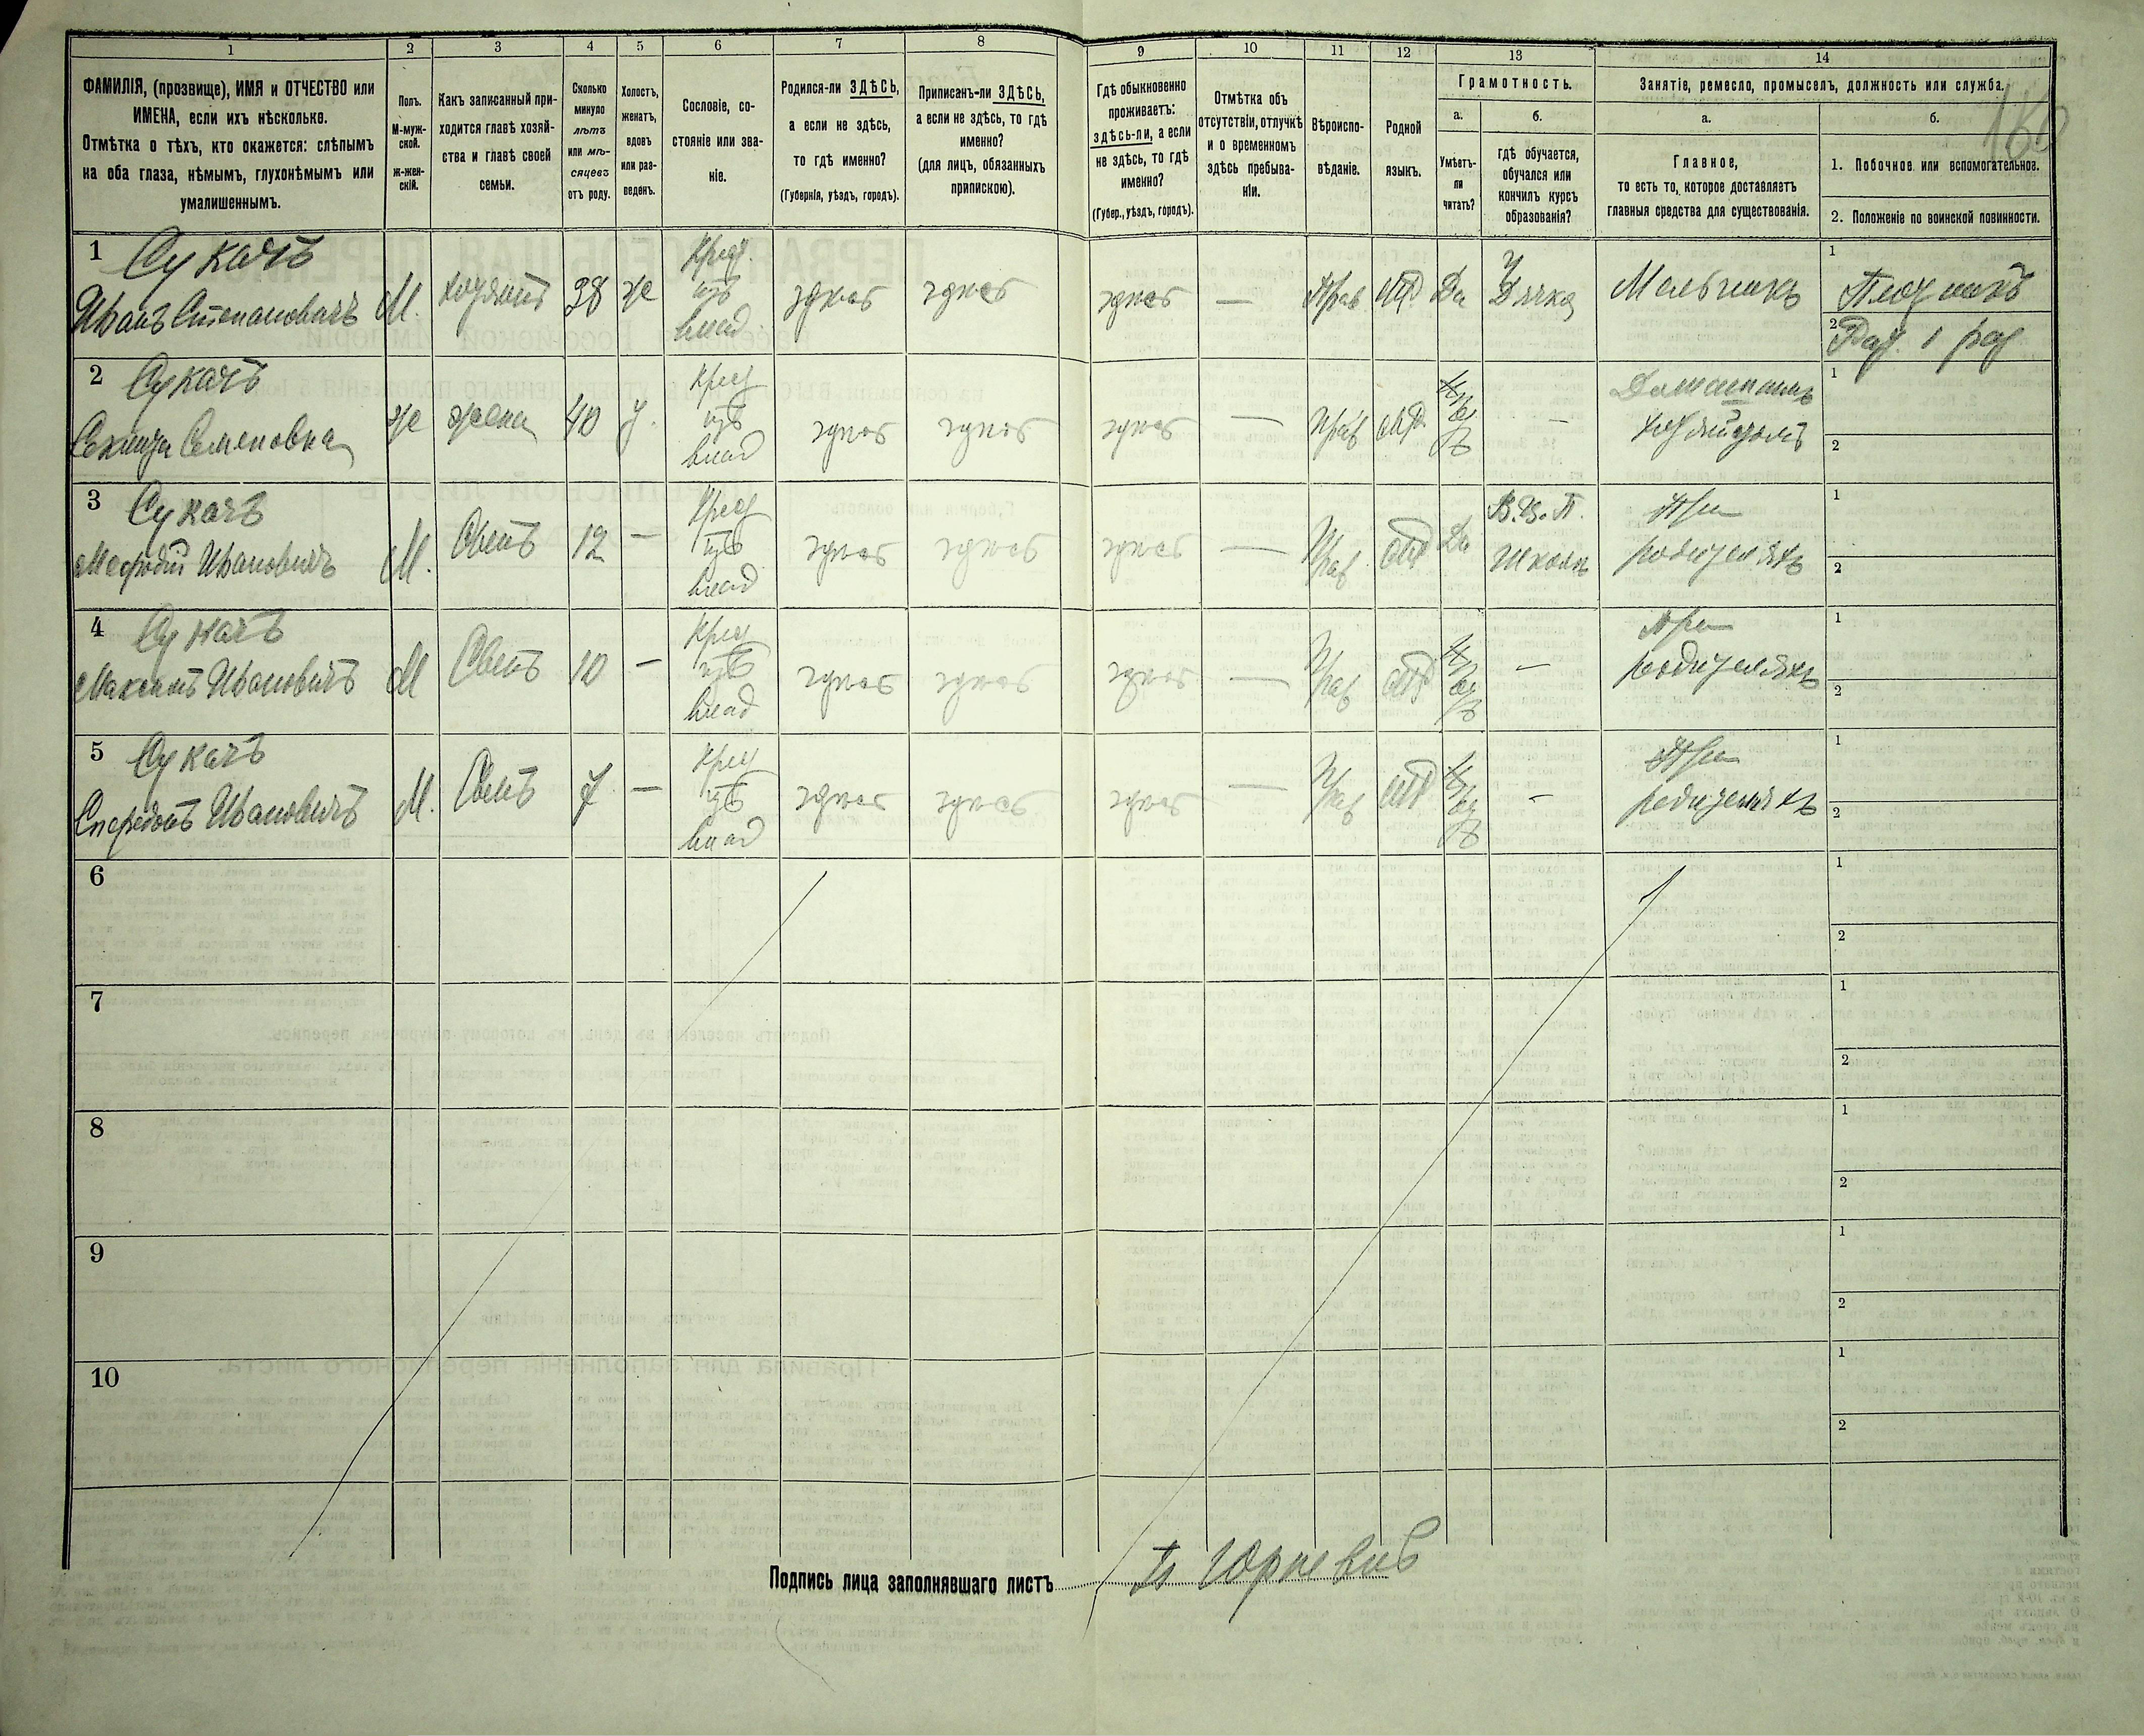 1
2
3
4
5
6
7
8
9
10
11
12
13
14
ФАМИЛІЯ, (прозвище), ИМЯ и ОТЧЕСТВО или
ИМЕНА, если ихъ нѣсколько.
Отмѣтка о тѣхъ, кто окажется: слѣпымъ
на оба глаза, нѣмымъ, глухонѣмымъ или
умалишеннымъ.
Полъ.
М-муж-
ской.
ж-жен-
скій.
Какъ записанный при-
ходится главѣ хозяй-
ства и главѣ своей
семьи.
Сколько
минуло
лѣтъ
или мѣ-
сяцевъ
отъ роду.
Холостъ,
женатъ,
вдовъ
или раз-
веденъ.
Сословіе, со-
стояніе или зва-
ніе.
Родился-ли ЗДѢСЬ,
а если не здѣсь,
то гдѣ именно?
(Губернія, уѣздъ, городъ).
Приписанъ-ли ЗДѢСЬ,
а если не здѣсь, то гдѣ
именно?
(для лицъ, обязанныхъ
припискою).
Гдѣ обыкновенно
проживаетъ:
здѣсь-ли, а если
не здѣсь, то гдѣ
именно?
(Губер., уѣздъ, городъ).
Отмѣтка объ
отсутствіи, отлучкѣ
и о временномъ
здѣсь пребыва-
ніи.
Вѣроиспо-
вѣданіе.
Родной
языкъ.
Грамотность.
а.
Умѣетъ-
ли
читать?
б.
гдѣ обучается,
обучался или
кончилъ курсъ
образованія?
Занятіе, ремесло, промыселъ, должность или служба.
а.
Главное,
то есть то, которое доставляетъ
главныя средства для существованія.
б.
1. Побочное или вспомогательное.
2. Положеніе по воинской повинности.
160
1 Сукачъ
Иванъ Степановичъ М. хозяинъ 38 же Крест. изъ влад. здѣсь здѣсь здѣсь — Прав Да У Дячка Мельникъ
1 Плотникъ
2
2 Сукачъ
Семеновна же жена 40 з. Крест изъ влад здѣсь здѣсь здѣсь — Прав — Домашнимъ хозяйствомъ
1
2
3 Сукачъ
Мефодій Ивановичъ М. Сынъ 12 — Крест изъ влад здѣсь здѣсь здѣсь — Прав Да Школѣ При родителяхъ
1
2
4 Сукачъ
Максимъ Ивановичъ М Сынъ 10 — Крест изъ влад здѣсь здѣсь здѣсь — Прав — При родителяхъ
1
2
5 Сукачъ
Спередонъ Ивановичъ М. Сынъ 7 — Крест изъ влад здѣсь здѣсь здѣсь — Прав — При родителяхъ
1
2
6
1
2
7
1
2
8
1
2
9
1
2
10
1
2
Подпись лица заполнявшаго листъ